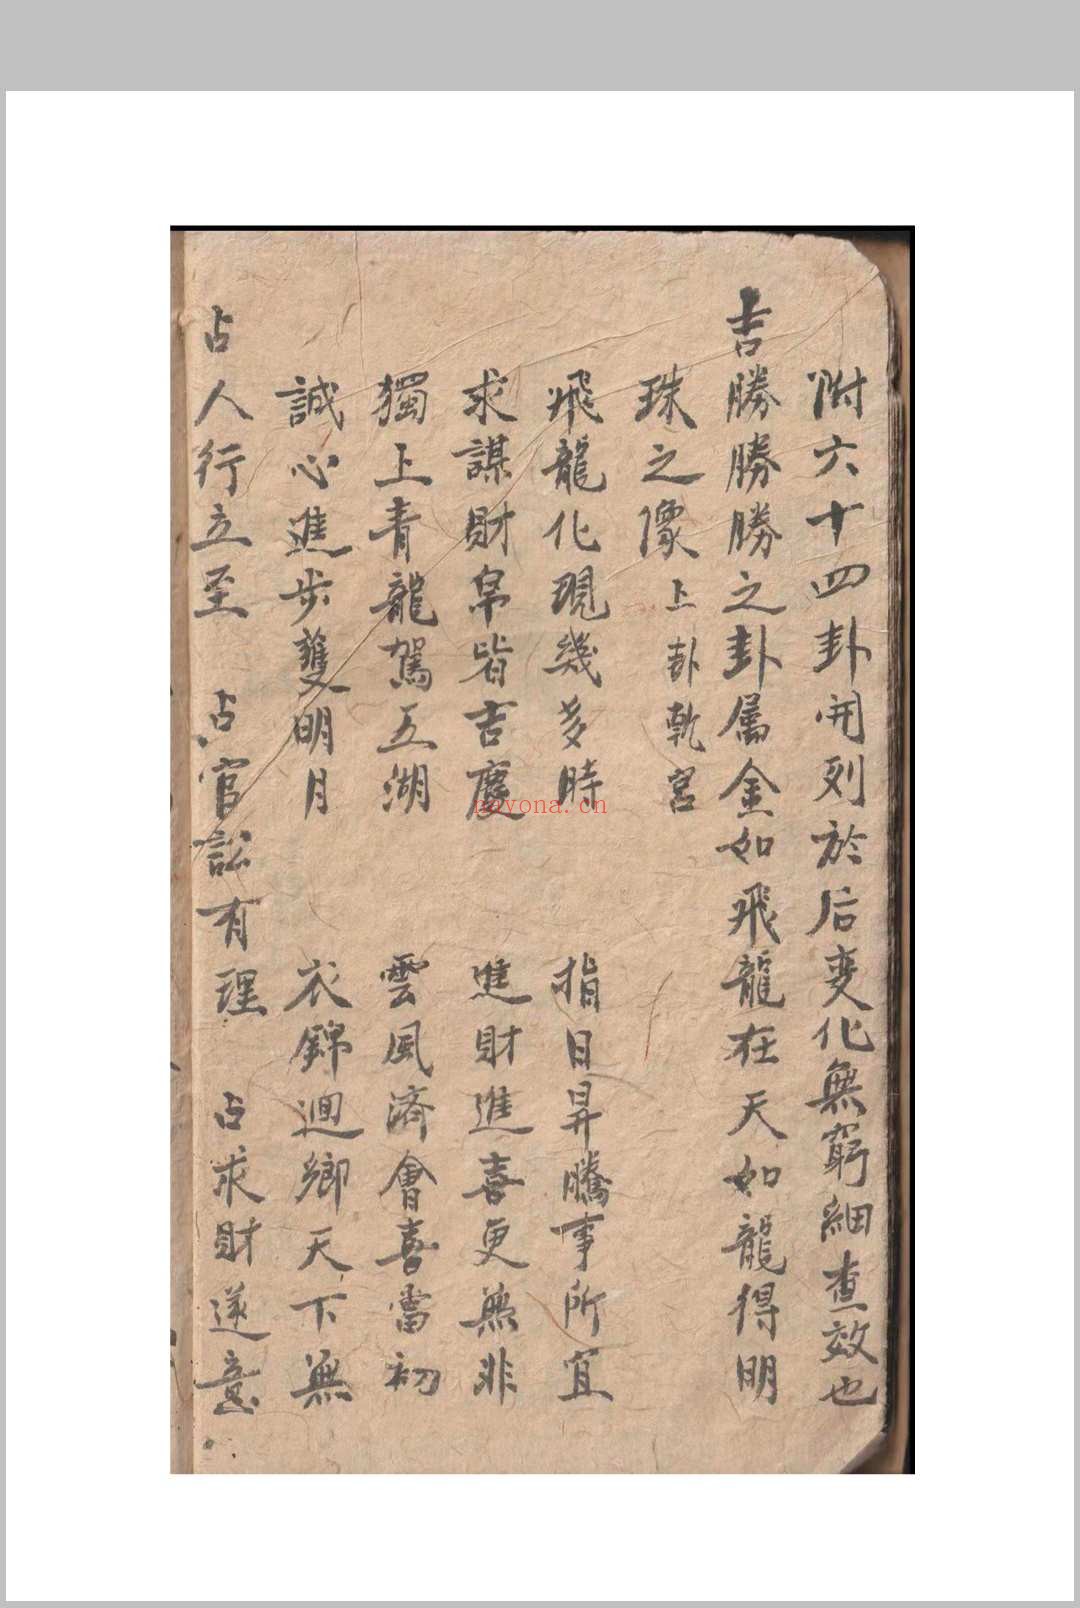 附六十四卦開列於后变化無窮細查效也
吉勝勝勝之卦属金如飛龍在天如龍得明
珠之像上卦乾宮
飛龍化現幾多時 指日昇騰事所宜
求謀財帛皆吉慶 進財進喜更無非
獨上青龍駕五湖 雲風済會喜當初
誠心進步雙明月 衣錦迴鄉天下無
占人行立至 占官訟有理 占求財遂意
nayona.cn